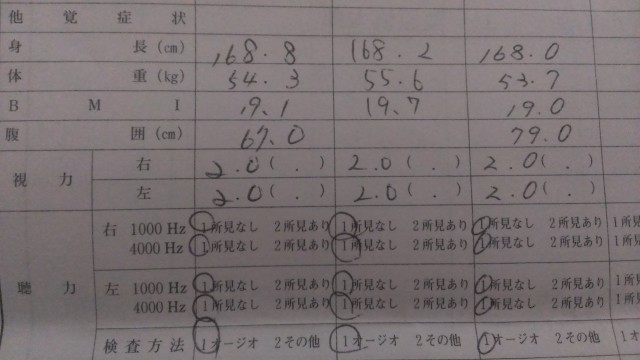 他覚症状
身長(cm) 168.8 168.2 168.0
体重(kg) 54.3 55.6 53.7
BMI 19.1 19.7 19.0
腹囲(cm) 67.0 79.0
視力 右 2.0( . ) 2.0( . ) 2.0( . )
左 2.0( . ) 2.0( . ) 2.0( . )
聴力 右 1000 Hz 1所見なし 2所見あり 1所見なし 2所見あり 1所見なし 2所見あり 1所見
4000 Hz 1所見なし 2所見あり 1所見なし 2所見あり 1所見なし 2所見あり 1所見
左 1000 Hz 1所見なし 2所見あり 1所見なし 2所見あり 1所見なし 2所見あり 1所見
4000 Hz 1所見なし 2所見あり 1所見なし 2所見あり 1所見なし 2所見あり 1所見
検査方法 1オージオ 2その他 1オージオ 2その他 1オージオ 2その他 1オ